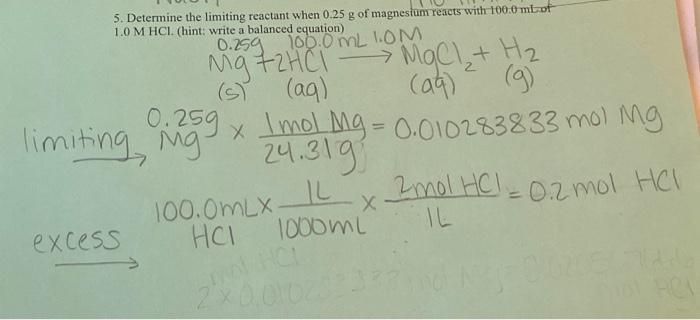 5. Determine the limiting reactant when 0.25 g of magnesium reacts with 100.0 mL of
1.0 M HCl. (hint: write a balanced equation)
0.25g 100.0mL 1.0M
Mg + 2HCl → MgCl₂ + H₂
(s) (aq) (aq) (g)
limiting 0.25g Mg × 1mol Mg / 24.31g = 0.010283833 mol Mg
100.0mL HCl × 1L / 1000mL × 2mol HCl / 1L = 0.2 mol HCl
excess